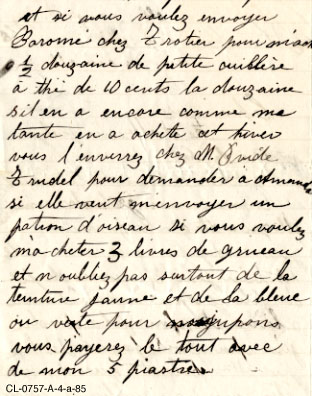 et si vous voulez envoyer
Baromé chez Trotier pour m'ach
½ douzaine de petite cuillère
à thé de 10 cents la douzaine
s'il en a encore comme ma
tante en a acheté cet hiver
vous l'enverrez chez M Ovide
Trudel pour demander à Amanda
si elle veut m'envoyer un
patron d'oiseau si vous voulez
m'acheter 3 livres de grueau
et n oubliez pas surtout de la
teinture jaune et de la bleue
ou pour jupons
vous payerez le tout avec
de mon 5 piastres
CL-0757-A-4-a-85